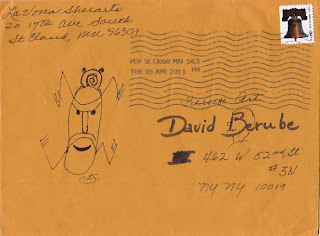 LaVona Sherarts
20 17th Ave South
St Cloud, MN 56301
PDF St Cloud MN 563
TUE 05 APR 2011 PM
David Berube
462 W 52nd St
# 3N
NY NY 10019